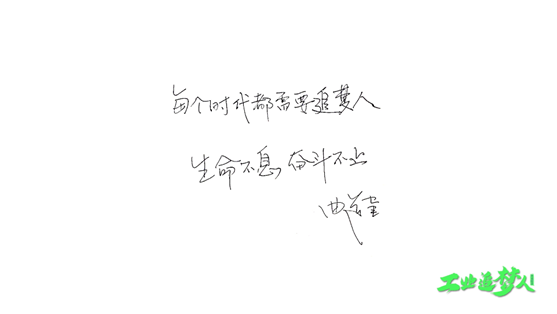 每个时代都需要追梦人
生命不息,奋斗不止
工业追梦人!